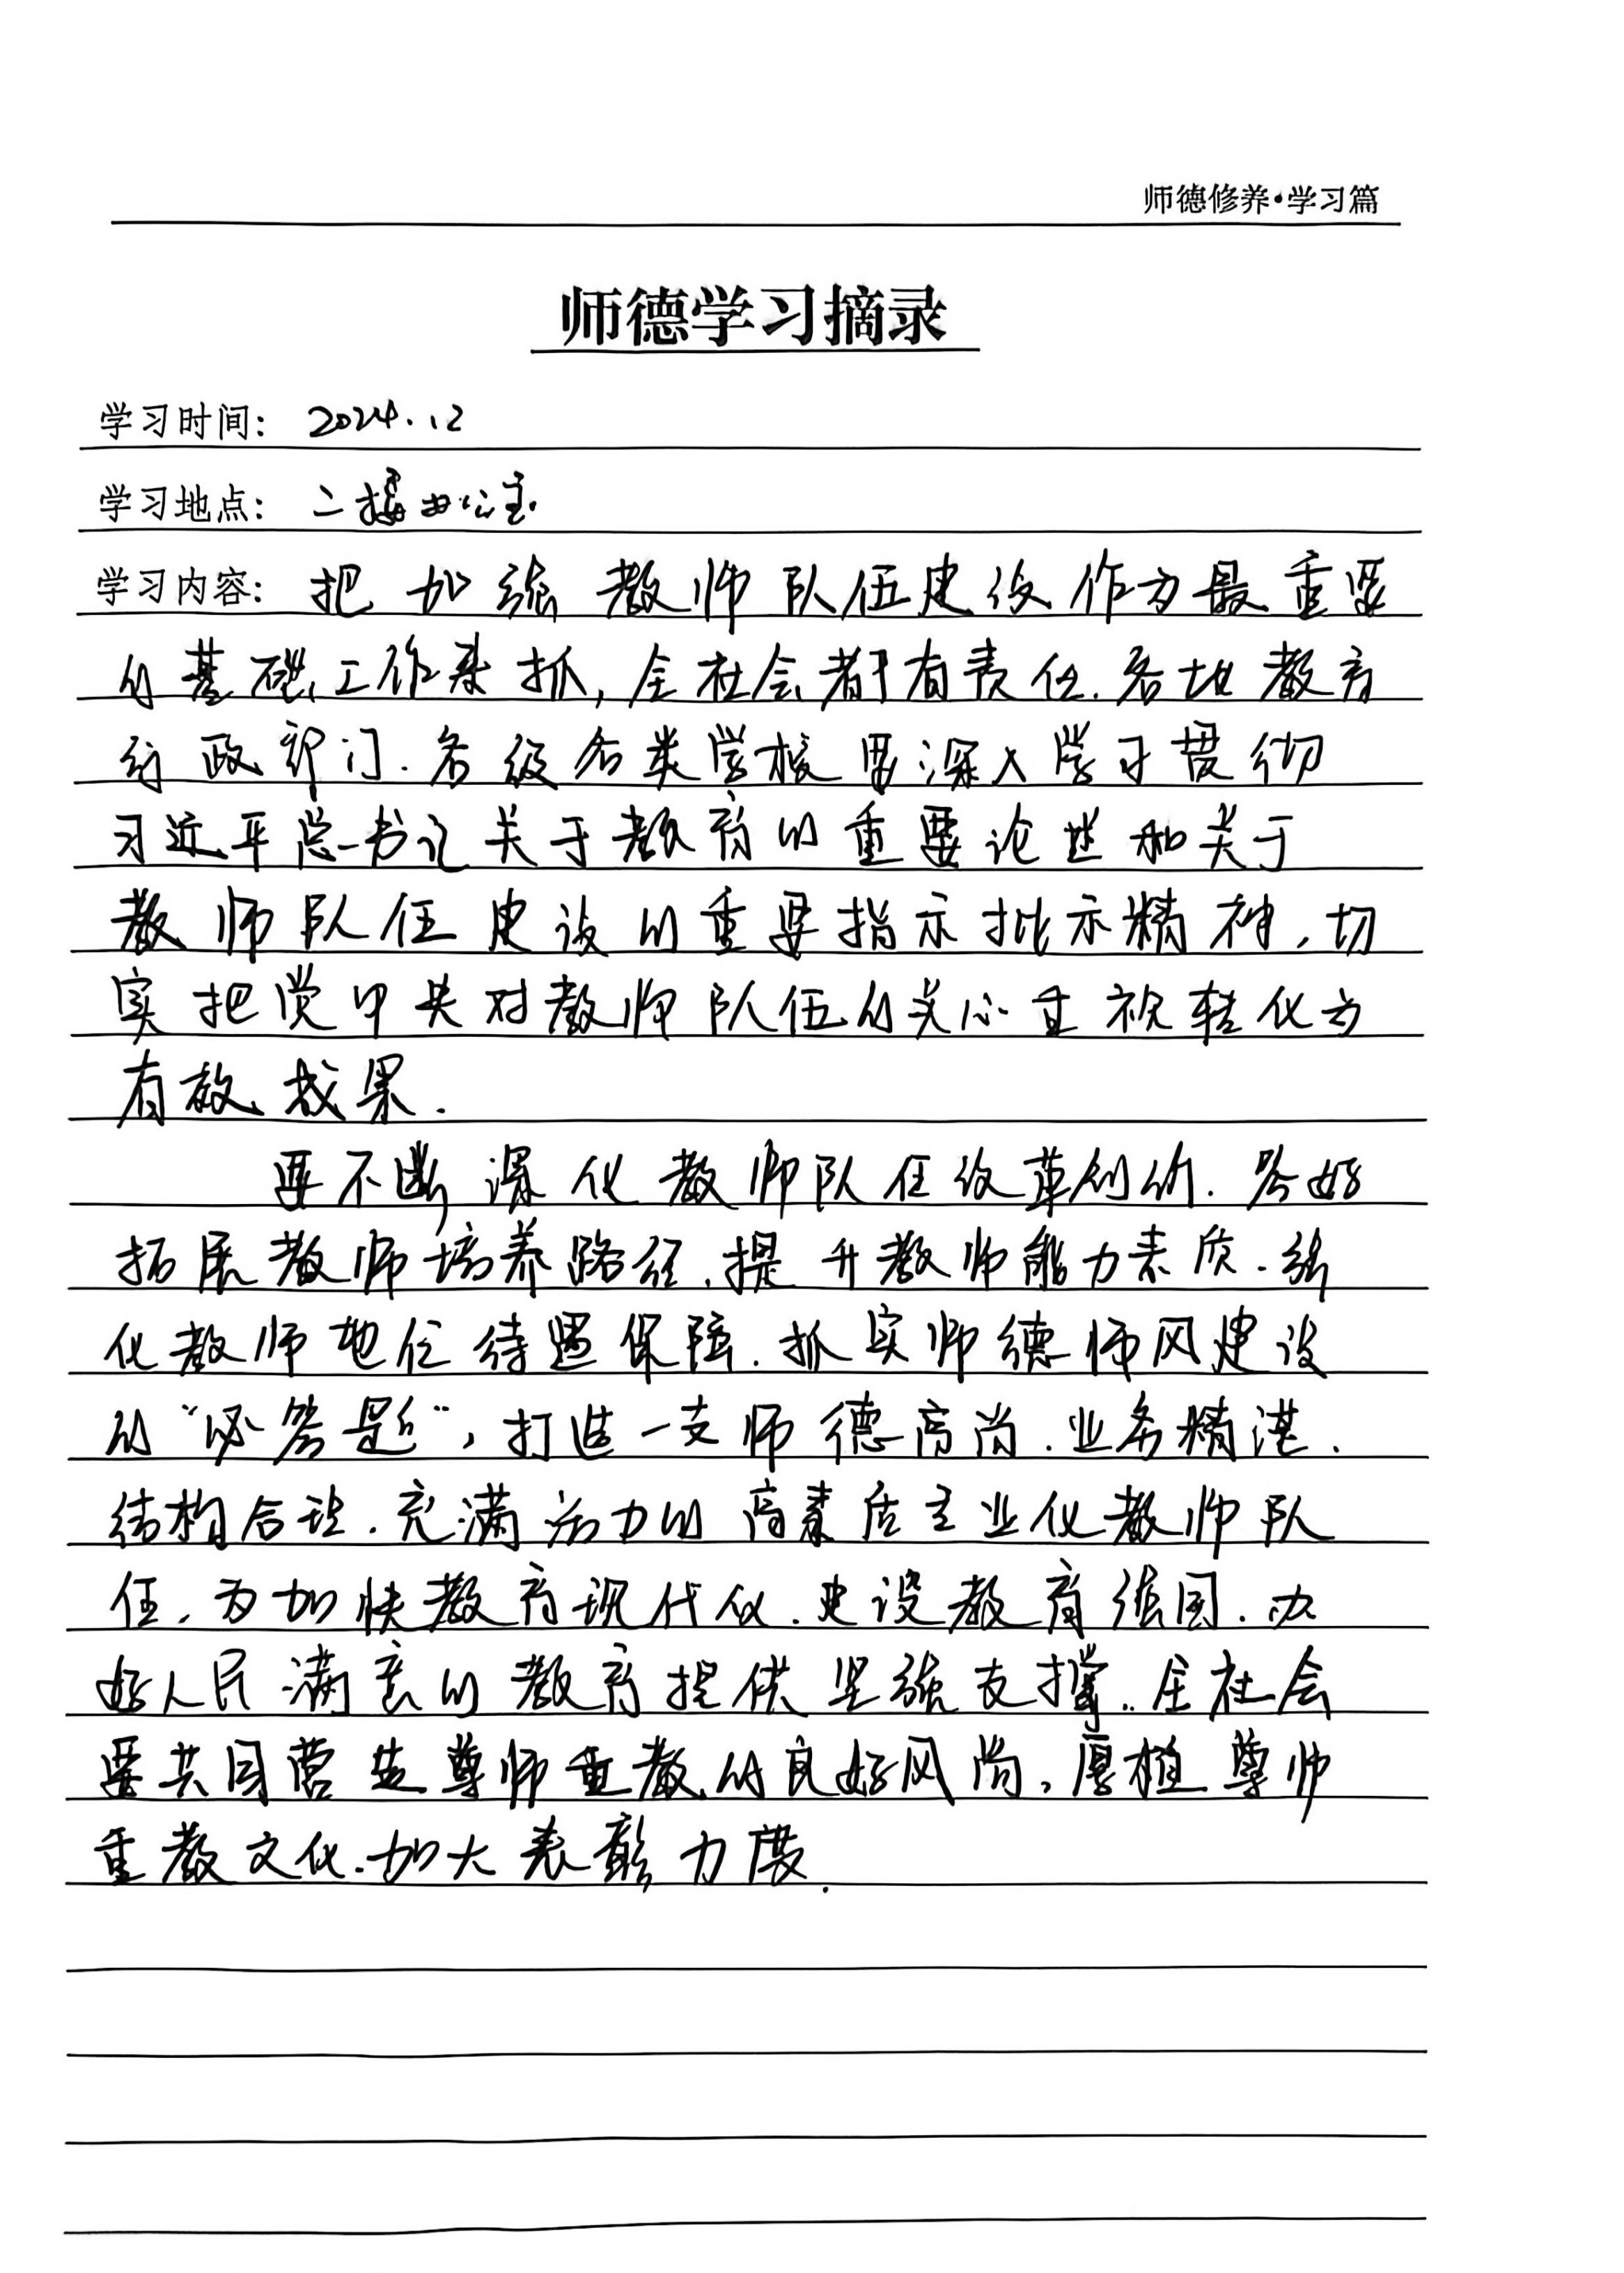 师德修养•学习篇
师德学习摘录
学习时间: 2024.12
学习地点: 二楼办公室
学习内容: 把加强教师队伍建设作为最重要
的基础工作来抓,全社会都有责任.各地教育
行政部门.各级各类学校要深入学习贯彻
习近平总书记关于教育的重要论述和关于
教师队伍建设的重要指示批示精神,切
实把党中央对教师队伍的关心重视转化为
有效成果.
要不断深化教师队伍改革创新.答好
拓展教师培养路径.提升教师能力素质.强
化教师地位待遇保障.抓实师德师风建设
的“必答题”,打造一支师德高尚.业务精湛.
结构合理.充满活力的高素质专业化教师队
伍,为加快教育现代化.建设教育强国.办
好人民满意的教育提供坚强支撑..全社会
要共同营造尊师重教的良好风尚,厚植尊师
重教文化.加大表彰力度.